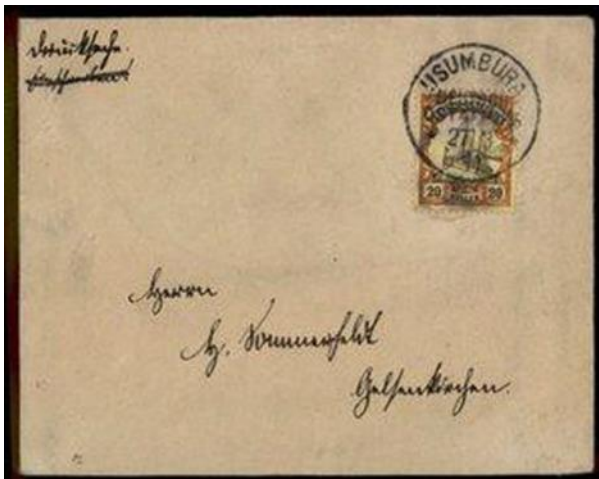 Drucksache.
USUMBURA
20 20
Herrn
H. Sommerfeldt
Gelsenkirchen.